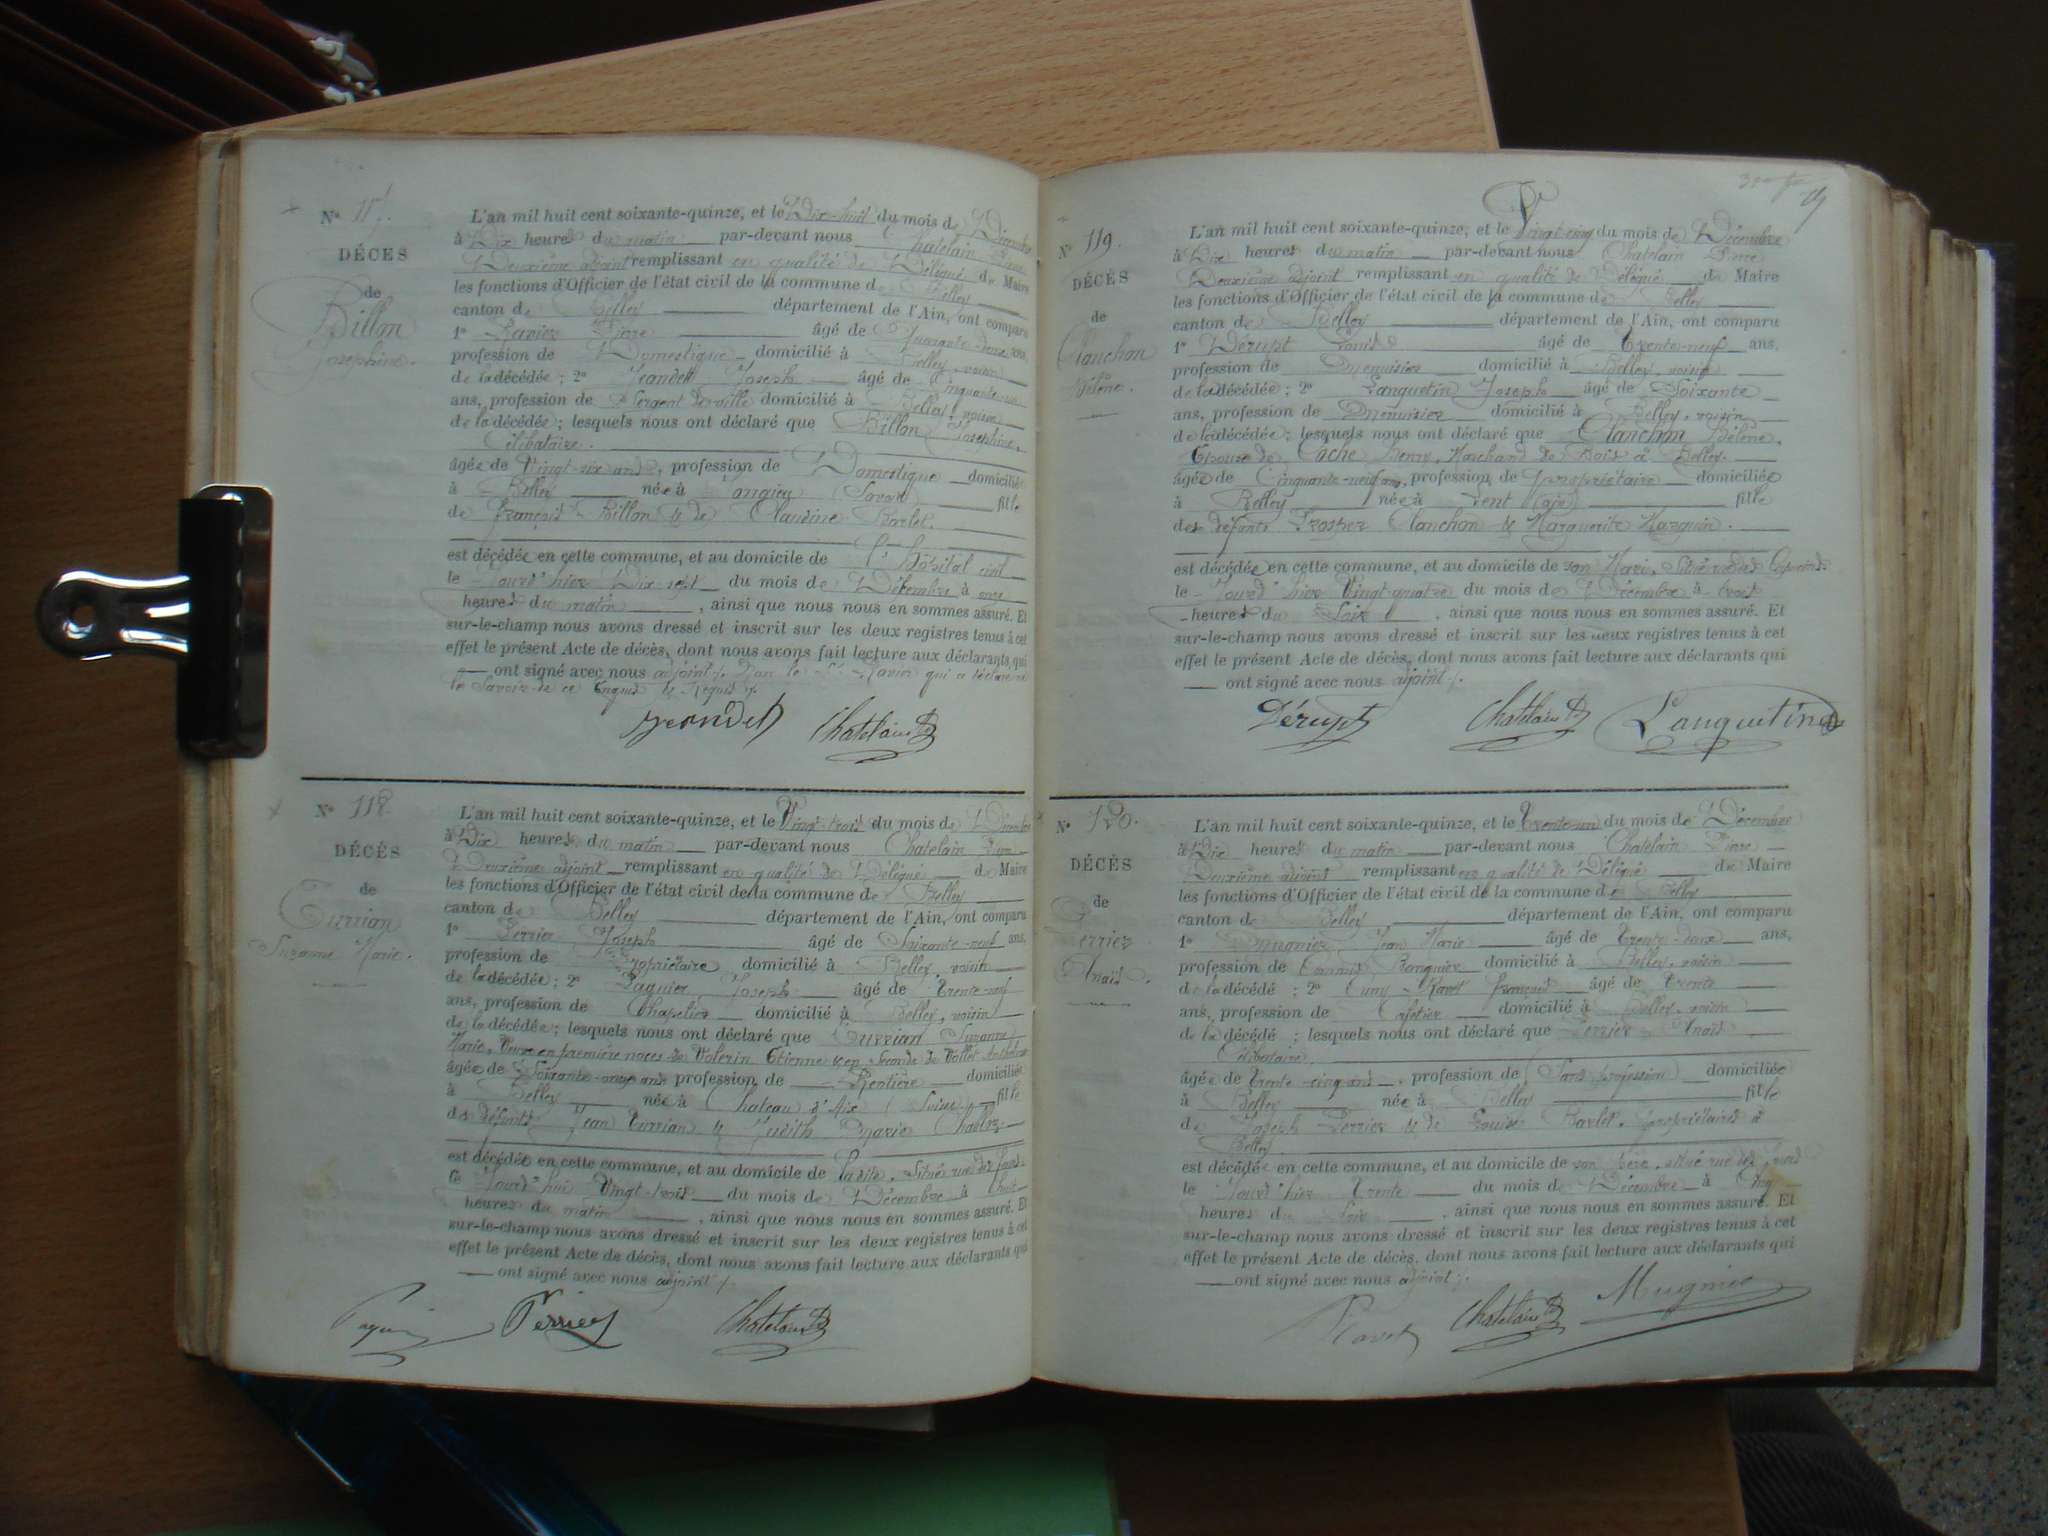 N° 117.
DÉCES
de
Billon
Josephine.
L'an mil huit cent soixante-quinze, et le Dix-huit du mois de Décembre
à Dix heures du matin par-devant nous Chatelain Pierre
Deuxième adjoint remplissant en qualité de Délégué de Maire
les fonctions d'Officier de l'état civil de la commune de Belley
canton de Belley département de l'Ain, ont comparu
1° Pierre âgé de Quarante-deux ans,
profession de Domestique domicilié à Belley, voisin
de la décédée; 2° Jeandet Joseph âgé de Cinquante-un
ans, profession de Sergent de ville domicilié à Belley, voisin
de la décédée; lesquels nous ont déclaré que Billon Josephine,
Célibataire.
âgée de Vingt-six ans, profession de Domestique domiciliée
à Belley née à (Savoie) fille
de François Billon & de Claudine
est décédée en cette commune, et au domicile de l'hôpital civil
le Jourd'hier Dix-sept du mois de Décembre à onze
heures du matin, ainsi que nous nous en sommes assuré. Et
sur-le-champ nous avons dressé et inscrit sur les deux registres tenus à cet
effet le présent Acte de décès, dont nous avons fait lecture aux déclarants, qui
ont signé avec nous adjoint /. Non le Sr qui a déclaré ne
le Savoir de ce Enquis & Requis /.
Jeandet Chatelain
N° 118.
DÉCÈS
de
Currian
Suzanne Marie.
L'an mil huit cent soixante-quinze, et le Vingt-trois du mois de Décembre
à Dix heures du matin par-devant nous Chatelain Pierre
Deuxième adjoint remplissant en qualité de Délégué de Maire
les fonctions d'Officier de l'état civil de la commune de Belley
canton de Belley département de l'Ain, ont comparu
1° Perrier Joseph âgé de Soixante-neuf ans,
profession de Propriétaire domicilié à Belley, voisin
de la décédée; 2° Joseph âgé de Trente-neuf
ans, profession de Chapelier domicilié à Belley, voisin
de la décédée; lesquels nous ont déclaré que Currian Suzanne
Marie, Veuve en première noces de Valerin Etienne & en Seconde de Vollet Anthelme
âgée de Soixante-onze ans profession de Rentière domiciliée
à Belley née à Chateau d'Aix (Suisse) fille
des défunts Jean Currian & Judith Marie
est décédée en cette commune, et au domicile de Ladite, Situé rue des
le Jourd'hui Vingt-trois du mois de Décembre à
heures du matin, ainsi que nous nous en sommes assuré. Et
sur-le-champ nous avons dressé et inscrit sur les deux registres tenus à cet
effet le présent Acte de décès, dont nous avons fait lecture aux déclarants qui
ont signé avec nous adjoint /.
Perrier Chatelain
N° 119.
DÉCÈS
de
Planchon
Hélène.
L'an mil huit cent soixante-quinze, et le Vingt-cinq du mois de Décembre
à Dix heures du matin par-devant nous Chatelain Pierre
Deuxième adjoint remplissant en qualité de Délégué de Maire
les fonctions d'Officier de l'état civil de la commune de Belley
canton de Belley département de l'Ain, ont comparu
1° Dérupt Louis âgé de Trente-neuf ans,
profession de Menuisier domicilié à Belley, voisin
de la décédée; 2° Languetin Joseph âgé de Soixante
ans, profession de Menuisier domicilié à Belley, voisin
de la décédée; lesquels nous ont déclaré que Planchon Hélène,
Epouse de Henry, Marchand de Bois à Belley.
âgée de Cinquante-neuf ans, profession de Propriétaire domiciliée
à Belley née à fille
des défunts Prosper Planchon & Marguerite
est décédée en cette commune, et au domicile de son Mari, Situé
le Jourd'hier Vingt-quatre du mois de Décembre à trois
heures du Soir, ainsi que nous nous en sommes assuré. Et
sur-le-champ nous avons dressé et inscrit sur les deux registres tenus à cet
effet le présent Acte de décès, dont nous avons fait lecture aux déclarants qui
ont signé avec nous adjoint /.
Dérupt Chatelain Languetin
N° 120.
DÉCÈS
de
Perrier
Anaïs.
L'an mil huit cent soixante-quinze, et le Trente-un du mois de Décembre
à Dix heures du matin par-devant nous Chatelain Pierre
Deuxième adjoint remplissant en qualité de Délégué de Maire
les fonctions d'Officier de l'état civil de la commune de Belley
canton de Belley département de l'Ain, ont comparu
1° Mugnier Jean Marie âgé de Trente-deux ans,
profession de Commis Banquier domicilié à Belley, voisin
de la décédé; 2° Ravet François âgé de Trente
ans, profession de Cafetier domicilié à Belley, voisin
de la décédé; lesquels nous ont déclaré que Perrier Anaïs
Célibataire,
âgée de Trente-cinq ans, profession de (Sans profession) domiciliée
à Belley née à Belley fille
de Joseph Perrier & de Louise propriétaires à
Belley.
est décédée en cette commune, et au domicile de son père, situé rue des
le Jourd'hier Trente du mois de Décembre à Cinq
heures du Soir, ainsi que nous nous en sommes assuré. Et
sur-le-champ nous avons dressé et inscrit sur les deux registres tenus à cet
effet le présent Acte de décès, dont nous avons fait lecture aux déclarants qui
ont signé avec nous adjoint /.
Ravet Chatelain Mugnier